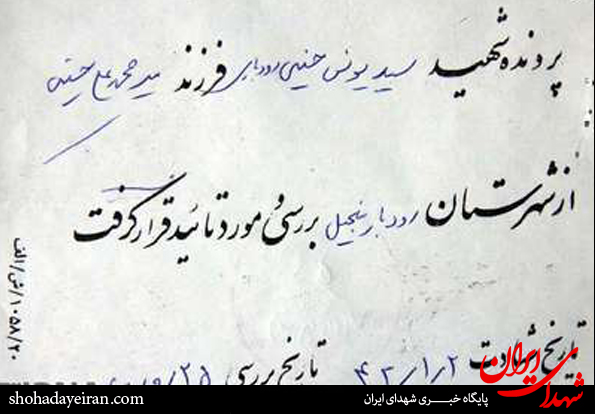 پرونده شهید سید یونس حسینی رودباری فرزند سید محمد علی حسینی
از شهرستان رودبار منجیل بررسی و مورد تائید قرار گرفت
تاریخ شهادت ۴۲/۱/۲ تاریخ بررسی
۱۰۵۸/۲۰/ش/الف
شهدای ایران
shohadayeiran.com
پایگاه خبری شهدای ایران